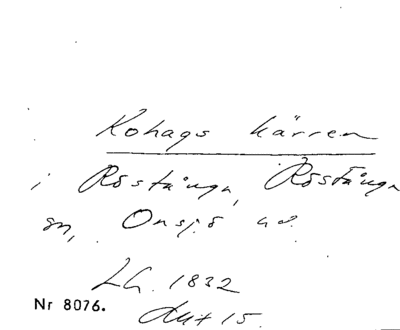 Kohags kärren
i Röstånga, Röstånga
sn, Onsjö hd.
Lh. 1832
Nr 8076.
Akt 15.